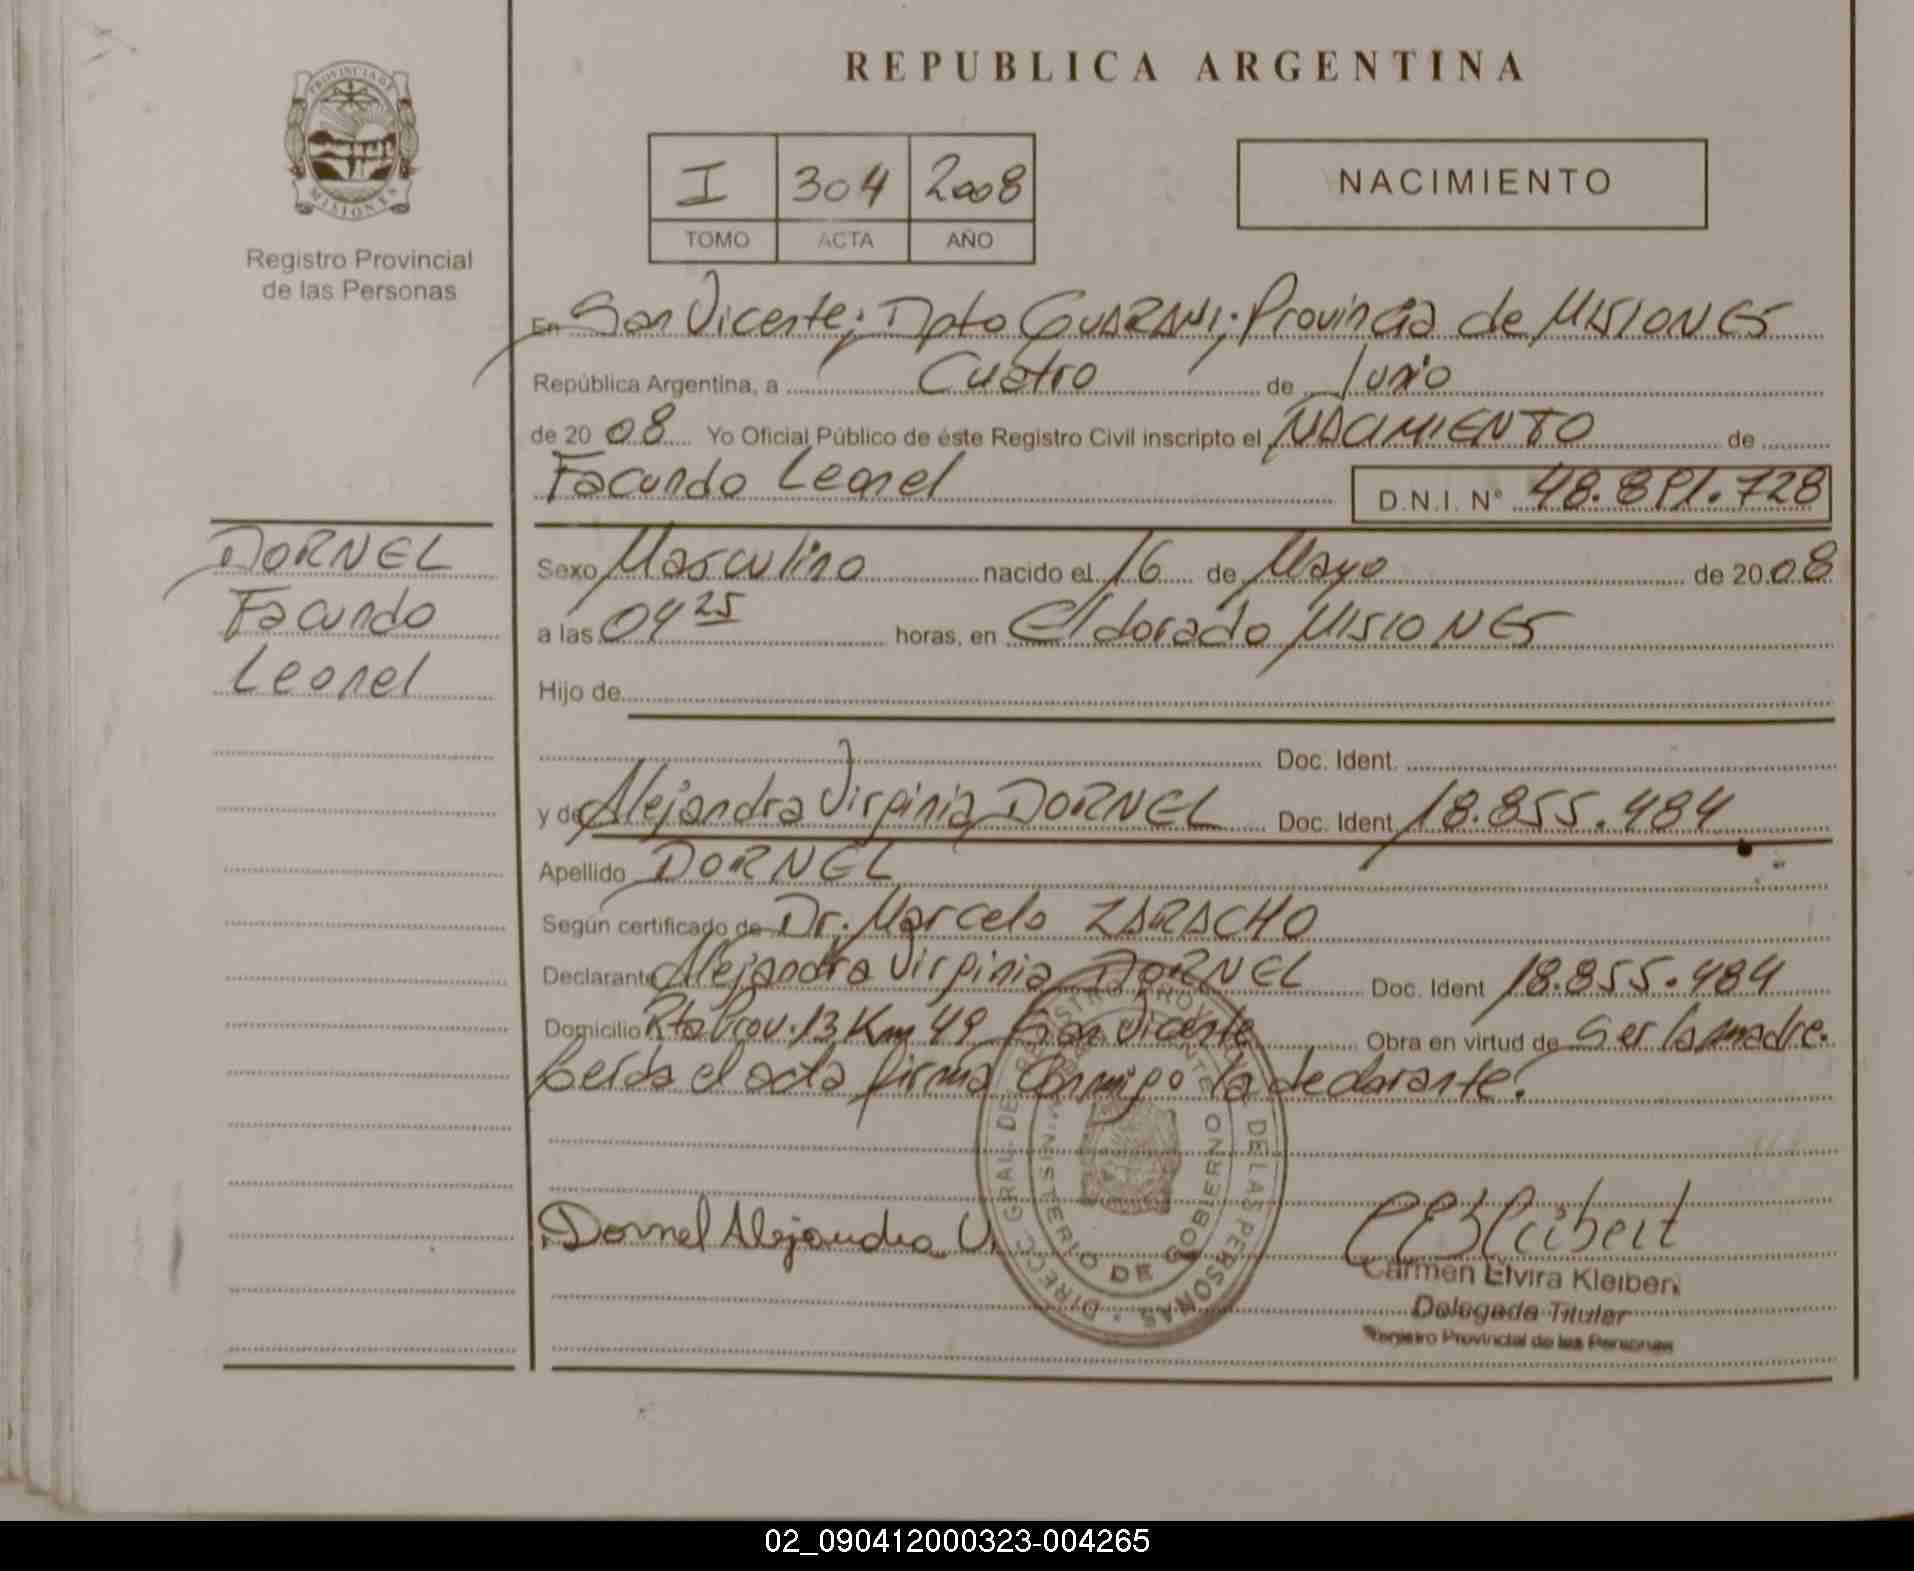 REPUBLICA ARGENTINA
PROVINCIA DE
MISIONES
Registro Provincial
de las Personas
I 304 2008
TOMO ACTA AÑO
NACIMIENTO
En San Vicente; Dpto GUARANI; Provincia de MISIONES
República Argentina, a Cuatro de Junio
de 2008 Yo Oficial Público de éste Registro Civil inscripto el NACIMIENTO de
Facundo Leonel D.N.I. N° 48.891.728
DORNEL
Facundo
Leonel
Sexo Masculino nacido el 16 de Mayo de 2008
a las 04 25 horas, en Eldorado MISIONES
Hijo de
Doc. Ident.
y de Alejandra Virginia DORNEL Doc. Ident. 18.855.484
Apellido DORNEL
Según certificado de Dr. Marcelo ZARACHO
Declarante Alejandra Virginia DORNEL Doc. Ident 18.855.484
Domicilio Rta Prov. 13 Km 49 San Vicente Obra en virtud de Ser la madre.
Leída el acta firma Conmigo la declarante.
Dornel Alejandra V.
DIRECC. GRAL. DE REGISTRO PROV. DE LAS PERSONAS
DE GOBIERNO
Carmen Elvira Kleibert
Delegada Titular
Registro Provincial de las Personas
02_090412000323-004265